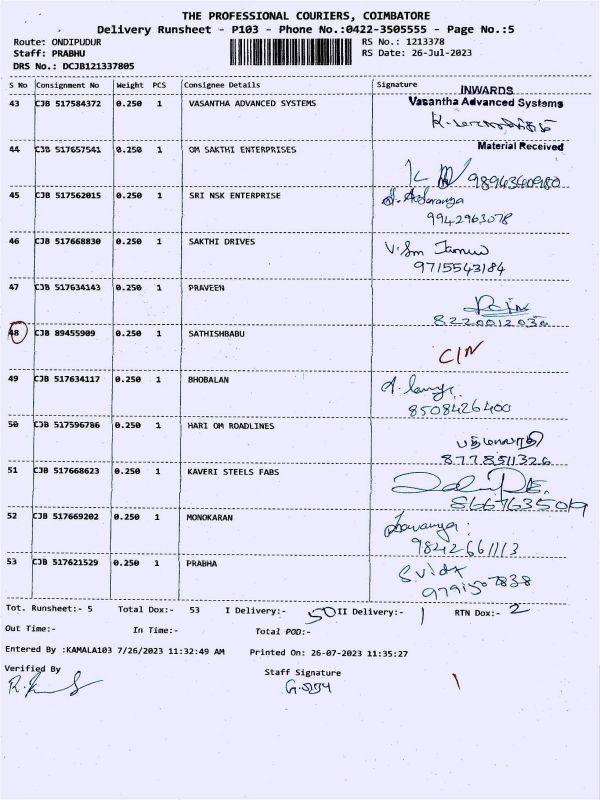 THE PROFESSIONAL COURIERS, COIMBATORE
Delivery Runsheet - P103 - Phone No.:0422-3505555 - Page No.:5
Route: ONDIPUDUR RS No.: 1213378
Staff: PRABHU RS Date: 26-Jul-2023
DRS No.: DCJB121337805
S No Consignment No Weight PCS Consignee Details Signature
INWARDS
43 CJB 517584372 0.250 1 VASANTHA ADVANCED SYSTEMS Vasantha Advanced Systems
44 CJB 517657541 0.250 1 OM SAKTHI ENTERPRISES Material Received
9894340980
45 CJB 517562015 0.250 1 SRI NSK ENTERPRISE
9942963078
46 CJB 517668830 0.250 1 SAKTHI DRIVES
9715543184
47 CJB 517634143 0.250 1 PRAVEEN
8220012030
48 CJB 89455909 0.250 1 SATHISHBABU
C/N
49 CJB 517634117 0.250 1 BHOBALAN
8508426400
50 CJB 517596786 0.250 1 HARI OM ROADLINES
8778511326
51 CJB 517668623 0.250 1 KAVERI STEELS FABS
8667635019
52 CJB 517669202 0.250 1 MONOKARAN
9842661113
53 CJB 517621529 0.250 1 PRABHA
9791507838
Tot. Runsheet:- 5 Total Dox:- 53 I Delivery:- 50 II Delivery:- 1 RTN Dox:- 2
Out Time:- In Time:- Total POD:-
Entered By :KAMALA103 7/26/2023 11:32:49 AM Printed On: 26-07-2023 11:35:27
Verified By Staff Signature